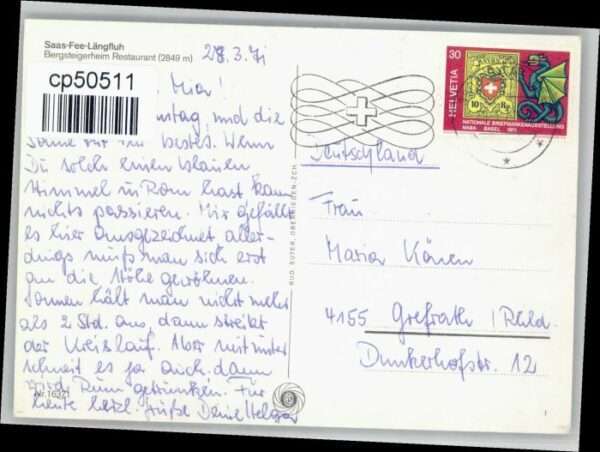 Saas-Fee-Längfluh
Bergsteigerheim Restaurant (2849 m)
28.3.71
cp50511
Mia!
und die
Sonne ihr bestes. Wenn
Du solch einen blauen
Himmel in Rom hast kann
nichts passieren. Mir gefällt
es hier ausgezeichnet, aller-
dings muß man sich erst
an die Höhe gewöhnen.
Sonnen hält man nicht mehr
als 2 Std. aus, dann streikt
der Kreislauf. Aber mitunter
schneit es ja auch. dann
wird Rum getrunken. Für
heute herzl. Grüße Deine Helga
Nr. 16321
RUD. SUTER, OBERRIEDEN-ZCH
30
HELVETIA
10 Rp
NATIONALE BRIEFMARKENAUSSTELLUNG
NABA BASEL 1971
Deutschland
Frau
Maria
4155 Grefrath / Rhld.
Dunkerhofstr. 12